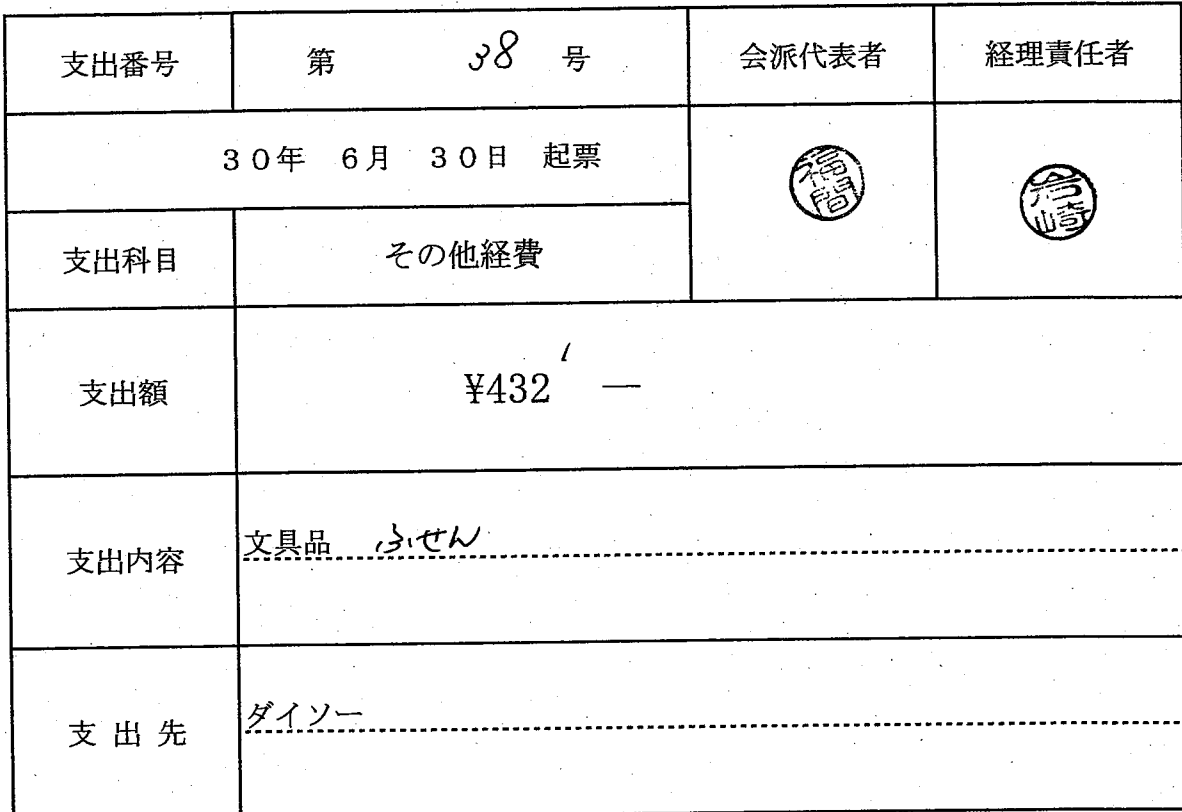 支出番号 第 38 号 会派代表者 経理責任者
30年 6月 30日 起票
福間
岩崎
支出科目 その他経費
支出額 ¥432 ―
支出内容 文具品 ふせん
支出先 ダイソー